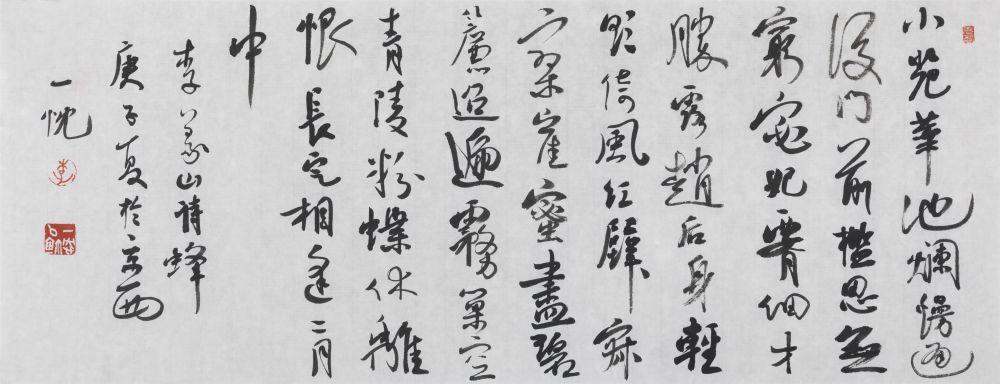 小苑華池爛慢通
後門前檻思無
窮宓妃腰細才
勝露趙后身輕
欲倚風紅壁寂
寥崖蜜盡碧
簷迢遞霧巢空
青陵粉蝶休離
恨長定相逢二月
中
李義山詩蜂
庚子夏於京西
一忱
李